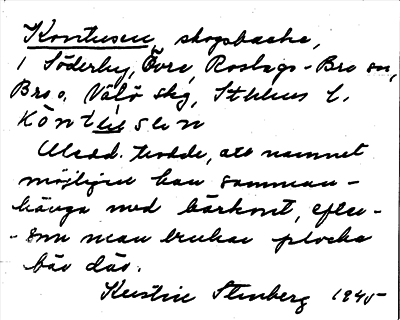 Kontusen, skogsbacke,
i Söderby, Övre, Roslags-Bro sn,
Bro o. Vätö skg, Sthlms l.
kòntu̲sen
Medd. trodde, att namnet
möjligen kan samman-
hänga med bärkont, efter-
-som man brukar plocka
bär där.
Kerstin Stenberg 1945